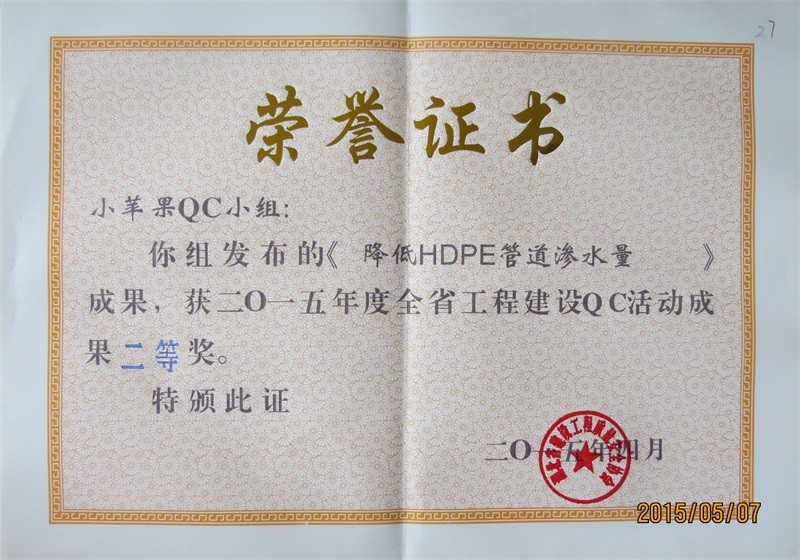 27
荣誉证书
小苹果QC小组：
你组发布的《 降低HDPE管道渗水量 》
成果，获二〇一五年度全省工程建设QC活动成
果二等奖。
特颁此证
二〇一五年四月
2015/05/07